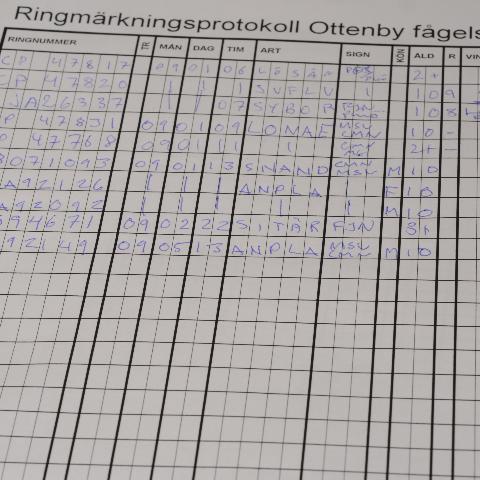 Ringmärkningsprotokoll Ottenby fågels
RINGNUMMER TR MÅN DAG TIM ART SIGN KÖN ÅLD R VIN
CP 47817 09 01 06 LÖSÅN 2+
CP 47820 | | | SVFLV | 10 9
JA26337 | | 07 SYBOR FJN 10 8
P 47831 09 01 09 LOMAE MSV CMN 10 -
P 47768 09 01 11 | 2+ -
3071093 09 01 13 SNAND CMN MSV M 10
A92126 | | | ANPLA | F 10
A92092 | | | | | M 10
94671 09 02 22 SITÄR FJN 3+
92149 09 05 13 ANPLA MSV CMN M 10